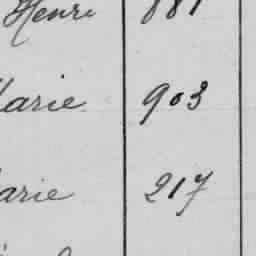 Henri 881
Marie 903
Marie 217